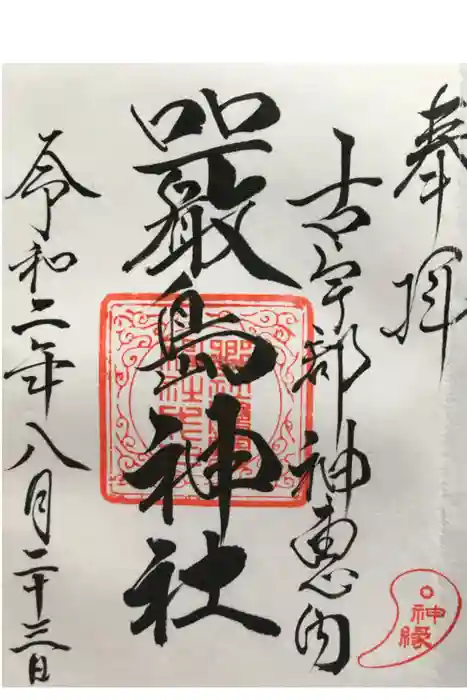 奉拝
古宇部神恵内
嚴島神社
令和二年八月二十三日
神縁